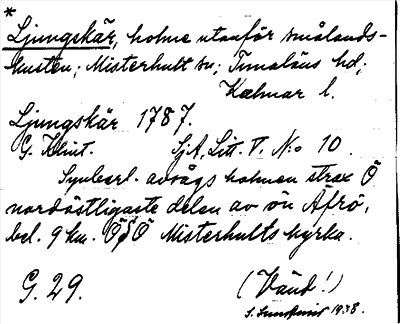 *
Ljungskär, holme utanför smålands-
kusten; Misterhult sn; Tunaläns hd;
Kalmar l.
Ljungskär 1787.
G. Klint. SjA, Litt. V. N:o 10.
Synberl. avsågs holmen strax Ö
nordöstligaste delen av ön Äfrö,
bel. 9 km. ÖSÖ Misterhults kyrka.
G. 29. (Vänd!)
S. 1938.